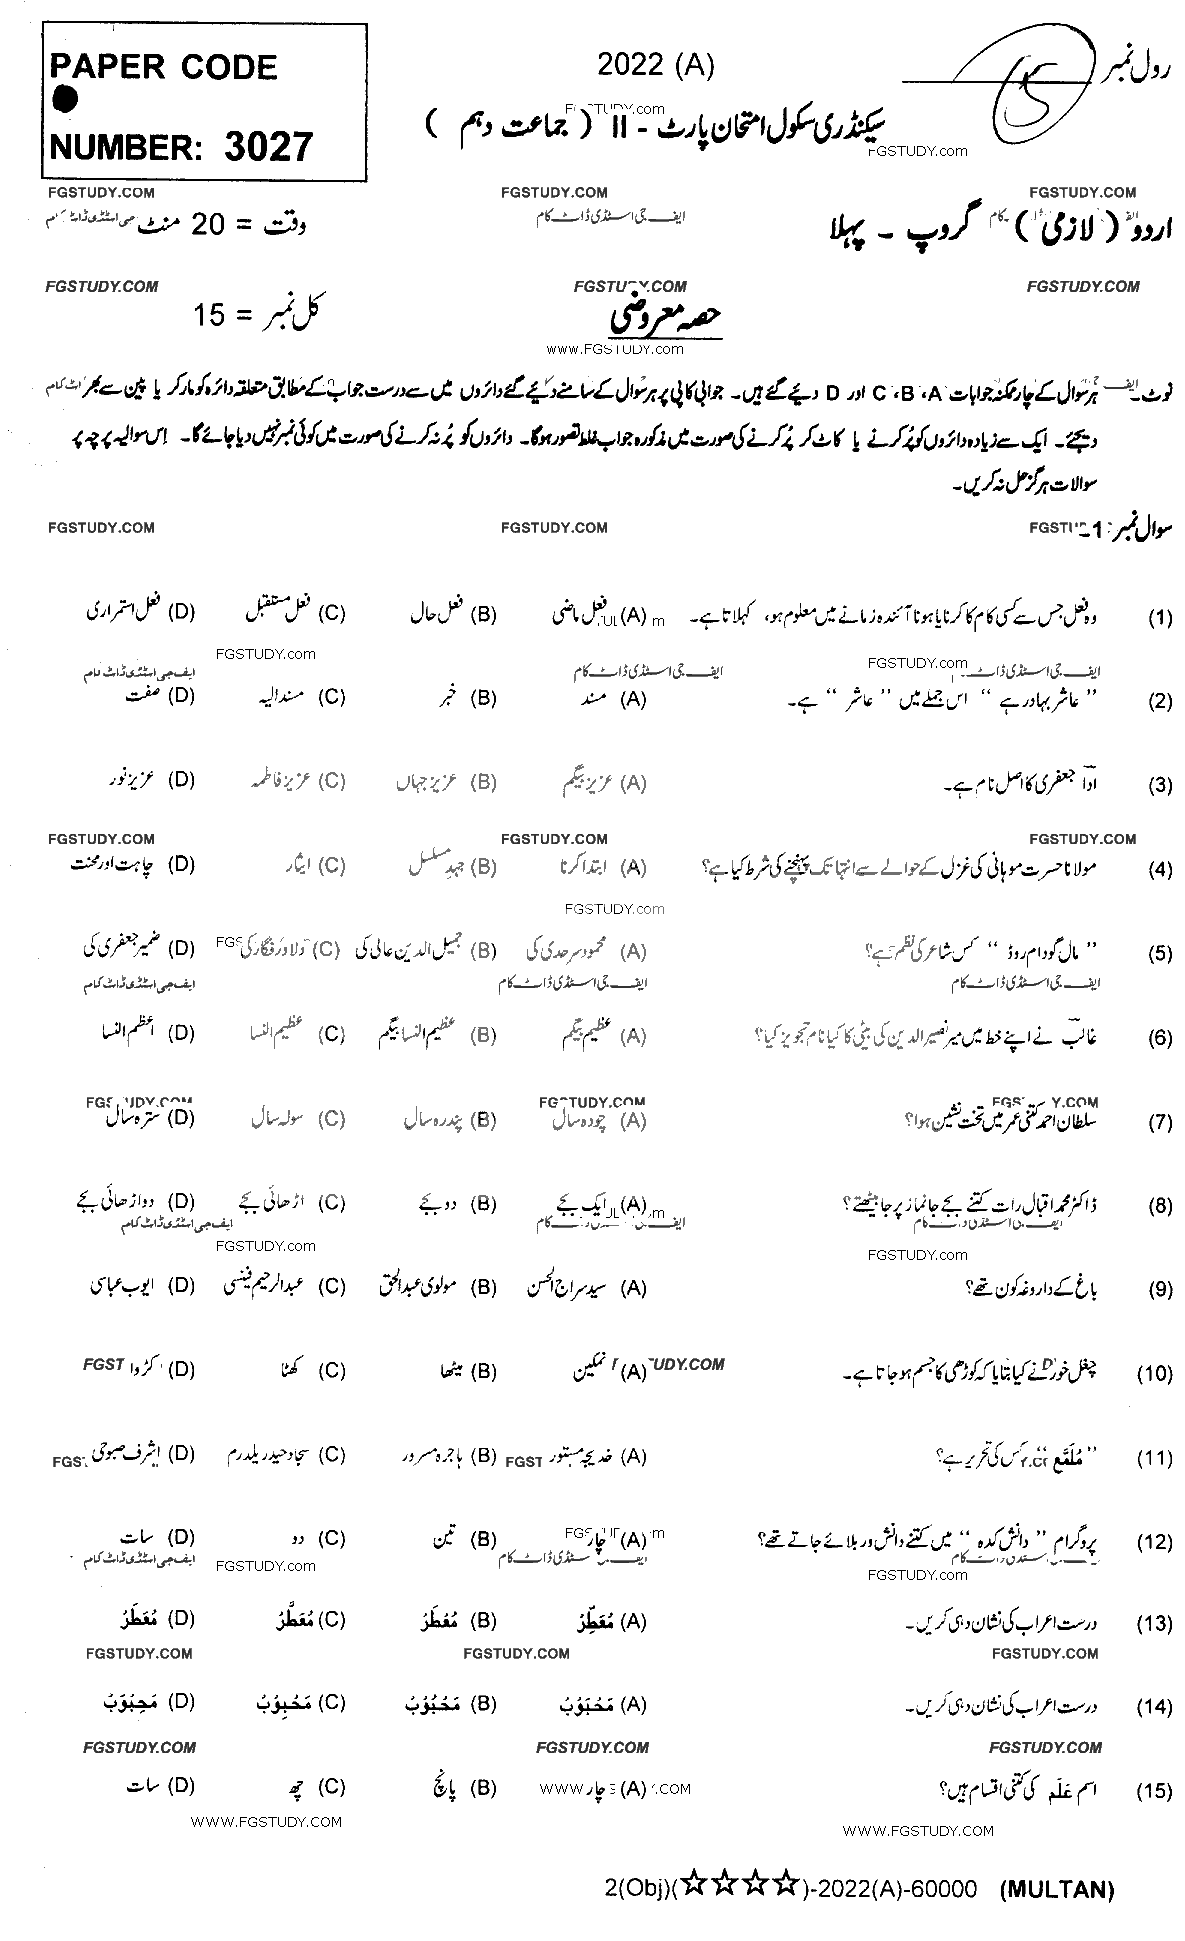 PAPER CODE
NUMBER: 3027
2022 (A)
رول نمبر
سیکنڈری سکول امتحان پارٹ - II ( جماعت دہم )
FGSTUDY.com
FGSTUDY.COM FGSTUDY.COM FGSTUDY.COM
اردو ( لازمی ) گروپ - پہلا
ایف جی اسٹڈی ڈاٹ کام
وقت = 20 منٹ
FGSTUDY.COM FGSTUDY.COM FGSTUDY.COM
حصہ معروضی
کل نمبر = 15
www.FGSTUDY.com
نوٹ۔ ہر سوال کے چار ممکنہ جوابات A ،B ،C اور D دیئے گئے ہیں۔ جوابی کاپی پر ہر سوال کے سامنے دیئے گئے دائروں میں سے درست جواب کے مطابق متعلقہ دائرہ کو مارکر یا پین سے بھر
دیجئے۔ ایک سے زیادہ دائروں کو پُر کرنے یا کاٹ کر پُر کرنے کی صورت میں مذکورہ جواب غلط تصور ہوگا۔ دائروں کو پُر نہ کرنے کی صورت میں کوئی نمبر نہیں دیا جائے گا۔ اس سوالیہ پرچہ پر
سوالات ہرگز حل نہ کریں۔
سوال نمبر 1-
FGSTUDY.COM FGSTUDY.COM
(1) وہ فعل جس سے کسی کام کا کرنا یا ہونا آئندہ زمانے میں معلوم ہو، کہلاتا ہے۔ (A) فعل ماضی (B) فعل حال (C) فعل مستقبل (D) فعل استمراری
FGSTUDY.com FGSTUDY.com
ایف جی اسٹڈی ڈاٹ کام ایف جی اسٹڈی ڈاٹ کام
(2) ’’ عاشر بہادر ہے ‘‘ اس جملے میں ’’ عاشر ‘‘ ہے۔ (A) مسند (B) خبر (C) مسندالیہ (D) صفت
(3) اداؔ جعفری کا اصل نام ہے۔ (A) عزیز بیگم (B) عزیز جہاں (C) عزیز فاطمہ (D) عزیز نور
FGSTUDY.COM FGSTUDY.COM FGSTUDY.COM
(4) مولانا حسرت موہانی کی غزل کے حوالے سے انتہا تک پہنچنے کی شرط کیا ہے؟ (A) ابتدا کرنا (B) جہدِ مسلسل (C) ایثار (D) چاہت اور محنت
FGSTUDY.com
(5) ’’ مال گودام روڈ ‘‘ کس شاعر کی نظم ہے؟ (A) محمود سرحدی کی (B) جمیل الدین عالی کی (C) دلاور فگار کی (D) ضمیر جعفری کی
ایف جی اسٹڈی ڈاٹ کام ایف جی اسٹڈی ڈاٹ کام ایف جی اسٹڈی ڈاٹ کام
(6) غالبؔ نے اپنے خط میں میر نصیر الدین کی بیٹی کا کیا نام تجویز کیا؟ (A) عظیم بیگم (B) عظیم النسا بیگم (C) عظیم النسا (D) اعظم النسا
(7) سلطان احمد کتنی عمر میں تخت نشین ہوا؟ (A) چودہ سال (B) پندرہ سال (C) سولہ سال (D) سترہ سال
(8) ڈاکٹر محمد اقبال رات کتنے بجے جائے نماز پر جا بیٹھتے؟ (A) ایک بجے (B) دو بجے (C) اڑھائی بجے (D) دو اڑھائی بجے
FGSTUDY.com FGSTUDY.com
(9) باغ کے داروغہ کون تھے؟ (A) سید سراج الحسن (B) مولوی عبدالحق (C) عبدالرحیم فینسی (D) ایوب عباسی
(10) چغل خور نے کیا بتایا کہ کوڑھی کا جسم ہو جاتا ہے۔ (A) نمکین (B) میٹھا (C) کھٹا (D) کڑوا
(11) ’’ مُلَمَّع ‘‘ کس کی تحریر ہے؟ (A) خدیجہ مستور (B) ہاجرہ مسرور (C) سجاد حیدر یلدرم (D) اشرف صبوحی
(12) پروگرام ’’ دانش کدہ ‘‘ میں کتنے دانش ور بلائے جاتے تھے؟ (A) چار (B) تین (C) دو (D) سات
FGSTUDY.com FGSTUDY.com
(13) درست اعراب کی نشان دہی کریں۔ (A) مُعَطِّرُ (B) مُعْطَرُ (C) مُعَطَّرُ (D) مُعَطَرُ
FGSTUDY.COM FGSTUDY.COM FGSTUDY.COM
(14) درست اعراب کی نشان دہی کریں۔ (A) (B) (C) (D)
FGSTUDY.COM FGSTUDY.COM FGSTUDY.COM
(15) اسم عَلَم کی کتنی اقسام ہیں؟ (A) چار (B) پانچ (C) چھ (D) سات
WWW.FGSTUDY.COM WWW.FGSTUDY.COM
2(Obj)(☆☆☆☆)-2022(A)-60000 (MULTAN)